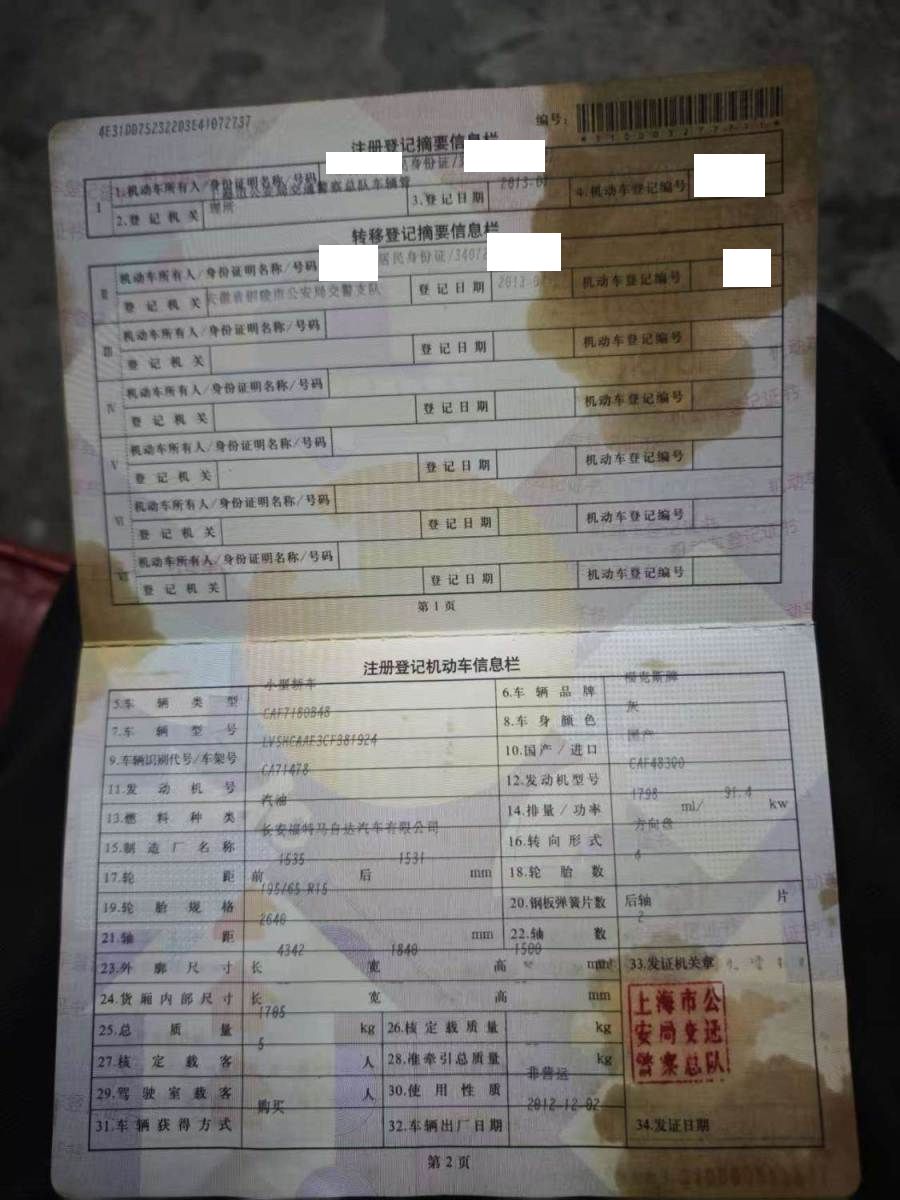 4E31007523220364107273​7
编号：
注册登记摘要信息栏
Ⅰ 1.机动车所有人/身份证明名称/号码 身份证/3
2.登记机关 交通警察总队车辆管理所 3.登记日期 2013-0 4.机动车登记编号
转移登记摘要信息栏
Ⅱ 机动车所有人/身份证明名称/号码 居民身份证/3407
登记机关 安徽省铜陵市公安局交警支队 登记日期 2013-0 机动车登记编号
Ⅲ 机动车所有人/身份证明名称/号码
登记机关 登记日期 机动车登记编号
Ⅳ 机动车所有人/身份证明名称/号码
登记机关 登记日期 机动车登记编号
Ⅴ 机动车所有人/身份证明名称/号码
登记机关 登记日期 机动车登记编号
Ⅵ 机动车所有人/身份证明名称/号码
登记机关 登记日期 机动车登记编号
Ⅶ 机动车所有人/身份证明名称/号码
登记机关 登记日期 机动车登记编号
第 1 页
注册登记机动车信息栏
5.车辆类型 小型轿车 6.车辆品牌 福克斯牌
7.车辆型号 CAF7180B48 8.车身颜色 灰
9.车辆识别代号/车架号 LVSHCAAE3CF381924 10.国产/进口 国产
11.发动机号 CA71478 12.发动机型号 CAF483Q0
13.燃料种类 汽油 14.排量/功率 1798 ml/ 91.4 kw
15.制造厂名称 长安福特马自达汽车有限公司 16.转向形式 方向盘
17.轮距 前 1535 后 1531 mm 18.轮胎数 4
19.轮胎规格 195/65 R15 20.钢板弹簧片数 后轴 片
21.轴距 2640 mm 22.轴数 2
23.外廓尺寸 长 4342 宽 1840 高 1500 mm 33.发证机关章
24.货厢内部尺寸 长 宽 高 mm
上海市公安局交通警察总队
25.总质量 1705 kg 26.核定载质量 kg
27.核定载客 5 人 28.准牵引总质量 kg
29.驾驶室载客 人 30.使用性质 非营运
31.车辆获得方式 购买 32.车辆出厂日期 2012-12-02 34.发证日期
第 2 页